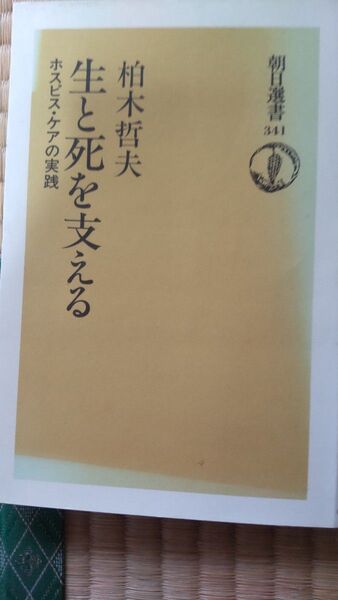 朝日選書
341
柏木哲夫
生と死を支える
ホスピス・ケアの実践